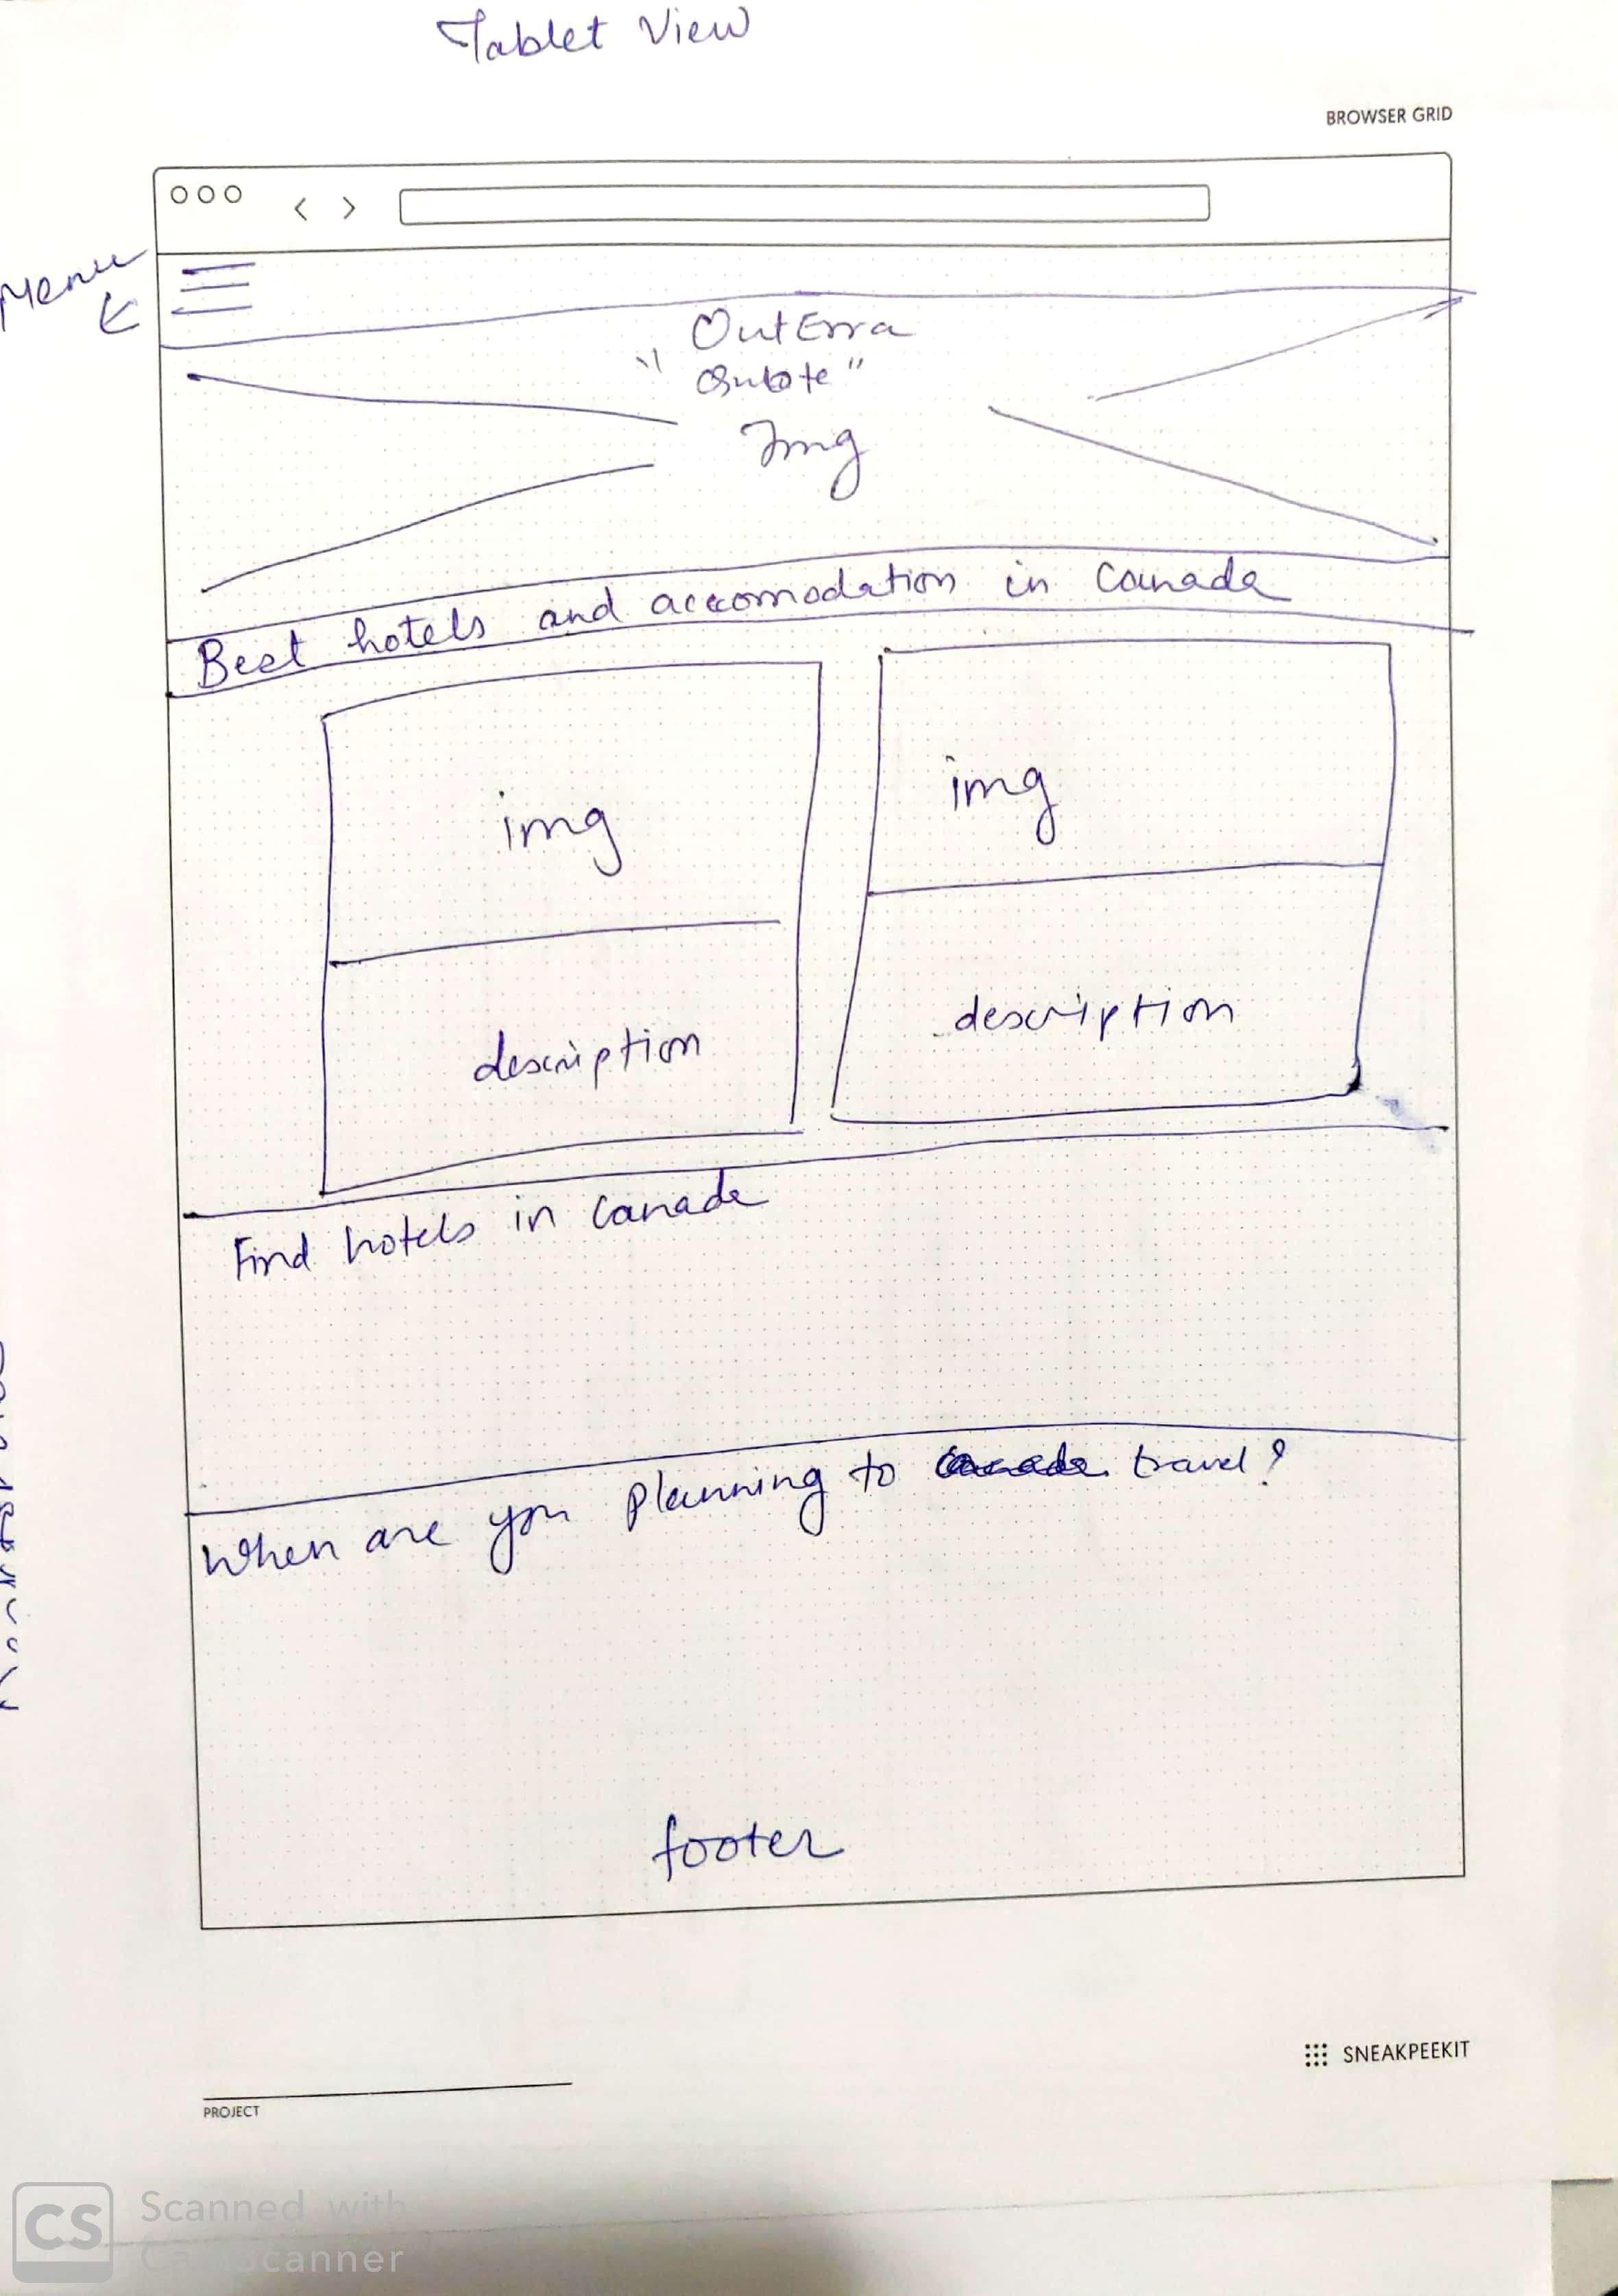 Tablet View
BROWSER GRID
Menu
OutErra
"Qutote"
Img
Best hotels and accomodation in Canada
img
img
description
description
Find hotels in Canada
When are you planning to travel?
footer
SNEAKPEEKIT
PROJECT
CS Scanned with
CamScanner